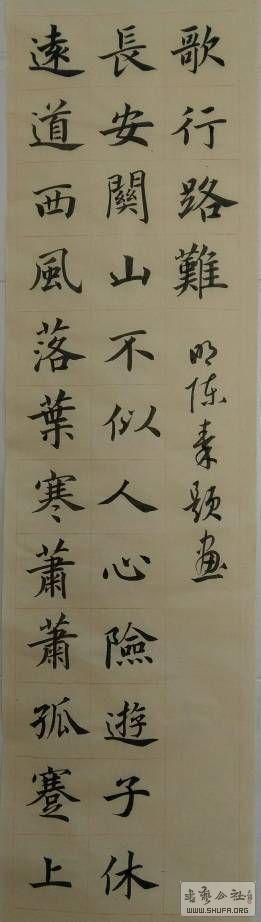 遠道西風落葉寒蕭蕭孤蹇上
長安關山不似人心險遊子休
歌行路難
明陳素題畫
书艺公社
WWW.SHUFA.ORG